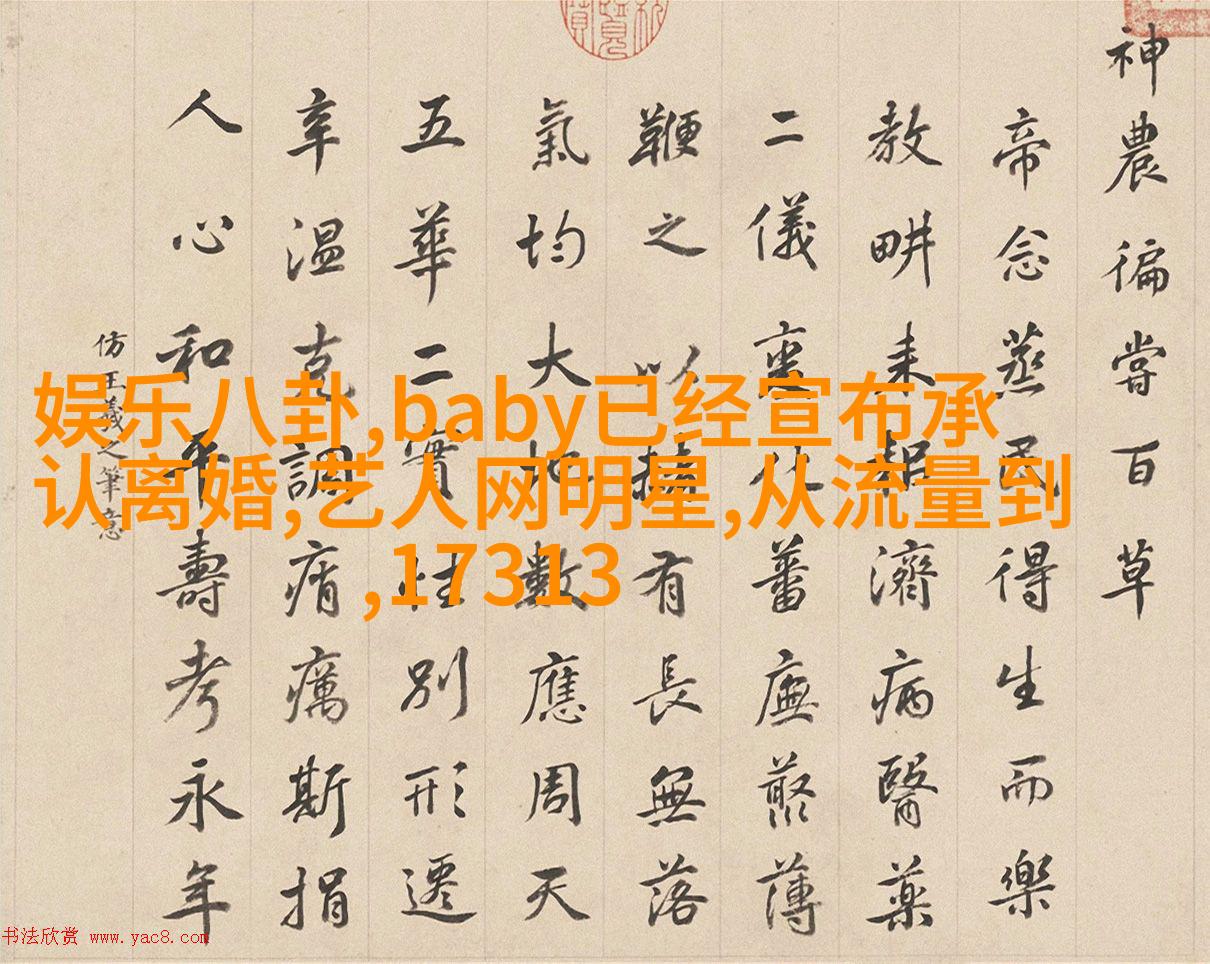 神農徧嘗百草
帝念蒸民得生而樂
教畊耒耜濟病醫藥
二儀化蕃廡藂薄
鞭之以有長無落
氣均大地數應周天
五華二實性別形遷
辛温克調痟癘斯捐
人心和平壽考永年
仿王羲之筆意
娱乐八卦,baby已经宣布承
认离婚,艺人网明星,从流量到
,17313
书法欣赏 www.yac8.com